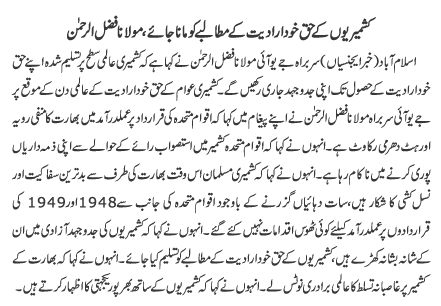 کشمیریوں کے حق خودارادیت کے مطالبے کو مانا جائے، مولانا فضل الرحمٰن
اسلام آباد (خبر ایجنسیاں) سربراہ جے یو آئی مولانا فضل الرحمٰن نے کہا ہے کہ کشمیری عالمی سطح پر تسلیم شدہ اپنے حق
خودارادیت کے حصول تک اپنی جدوجہد جاری رکھیں گے۔ کشمیری عوام کے حق خودارادیت کے عالمی دن کے موقع پر
جے یو آئی سربراہ مولانا فضل الرحمٰن نے اپنے پیغام میں کہا کہ اقوام متحدہ کی قرارداد پر عملدرآمد میں بھارت کا منفی رویہ
اور ہٹ دھرمی رکاوٹ ہے۔ انہوں نے کہا کہ اقوام متحدہ کشمیر میں استصواب رائے کے حوالے سے اپنی ذمہ داریاں
پوری کرنے میں ناکام رہا ہے۔ انہوں نے کہا کہ کشمیری مسلمان اس وقت بھارت کی طرف سے بدترین سفاکیت اور
نسل کشی کا شکار ہیں، سات دہائیاں گزرنے کے باوجود اقوام متحدہ کی جانب سے 1948 اور 1949 کی
قراردادوں پر عملدرآمد کیلئے کوئی ٹھوس اقدامات نہیں کئے گئے۔ انہوں نے کہا کہ کشمیریوں کی جدوجہد آزادی میں ان
کے شانہ بشانہ کھڑے ہیں، کشمیریوں کے حق خودارادیت کے مطالبے کو تسلیم کیا جائے۔ انہوں نے کہا کہ بھارت کے
کشمیر پر غاصبانہ تسلط کا عالمی برادری نوٹس لے۔ انہوں نے کہا کہ کشمیریوں کے ساتھ بھرپور یکجہتی کا اظہار کرتے ہیں۔